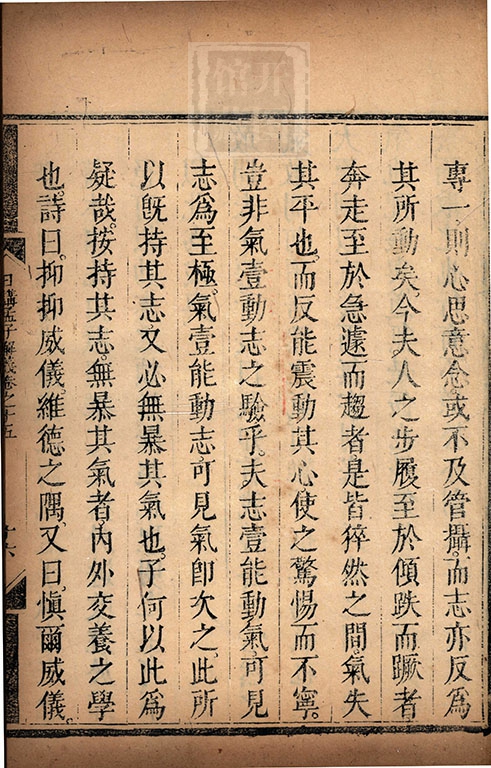 專一則心思意念或不及管攝而志亦反爲
其所動矣今夫人之步履至於傾跌而蹶者
奔走至於急遽而趨者是皆猝然之間氣失
其平也而反能震動其心使之驚惕而不寧
豈非氣壹動志之驗乎夫志壹能動氣可見
志爲至極氣壹能動志可見氣卽次之此所
以旣持其志又必無暴其氣也子何以此爲
疑哉按持其志無暴其氣者內外交養之學
也詩曰抑抑威儀維德之隅又曰愼爾威儀
日講孟子解義卷之十五 十六